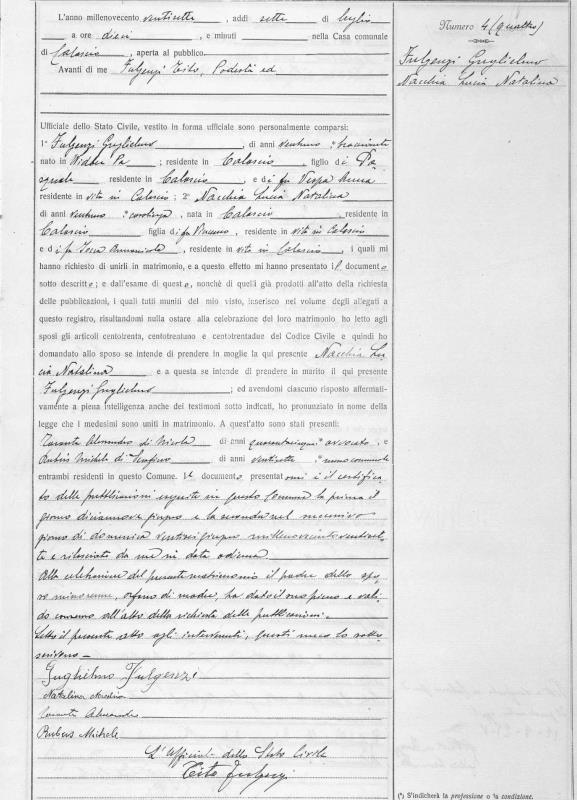 Numero 4 (quattro)
Fulgenzi Guglielmo
Nacchia Lucia Natalina
L'anno millenovecento ventisette, addì sette di luglio
a ore dieci e minuti nella Casa comunale
di Calascio, aperta al pubblico.
Avanti di me Fulgenzi Tito, Podestà ed
Ufficiale dello Stato Civile, vestito in forma ufficiale sono personalmente comparsi:
1° Fulgenzi Guglielmo, di anni ventuno
nato in ; residente in Calascio, figlio di Pa
squale residente in Calascio, e di fu Vespa Anna
residente in vita in Calascio; 2° Nacchia Lucia Natalina
di anni ventuno casalinga, nata in Calascio, residente in
Calascio figlia di fu , residente in vita in Calascio
e di fu , residente in vita in Calascio, i quali mi
hanno richiesto di unirli in matrimonio, e a questo effetto mi hanno presentato il documento
sotto descritto; e dall'esame di questo, nonchè di quelli già prodotti all'atto della richiesta
delle pubblicazioni, i quali tutti muniti del mio visto, inserisco nel volume degli allegati a
questo registro, risultandomi nulla ostare alla celebrazione del loro matrimonio, ho letto agli
sposi gli articoli centotrenta, centotrentuno e centotrentadue del Codice Civile e quindi ho
domandato allo sposo se intende di prendere in moglie la qui presente Nacchia Lu-
cia Natalina e a questa se intende di prendere in marito il qui presente
Fulgenzi Guglielmo; ed avendomi ciascuno risposto affermati-
vamente a piena intelligenza anche dei testimoni sotto indicati, ho pronunziato in nome della
legge che i medesimi sono uniti in matrimonio. A quest'atto sono stati presenti:
Taranta Alessandro di Nicola di anni quarantacinque avvocato, e
Rubeis Michele di Serafino di anni ventisette messo comunale
entrambi residenti in questo Comune. Il documento presentatomi è il certifica-
to delle pubblicazioni eseguite in questo Comune la prima il
giorno diciannove giugno e la seconda nel successivo
giorno di domenica ventisei giugno millenovecentoventiset-
te e rilasciato da me in data odierna.
Alla celebrazione del presente matrimonio il padre dello spo-
so minorenne, orfano di madre, ha dato il suo pieno e vali-
do consenso all'atto della richiesta delle pubblicazioni.
Letto il presente atto agli intervenuti, questi meco lo sotto-
scrivono —
Guglielmo Fulgenzi
Natalina Nacchia
Taranta Alessandro
Rubeis Michele
L'Ufficiale dello Stato Civile
Tito Fulgenzi
(*) S'indicherà la professione o la condizione.